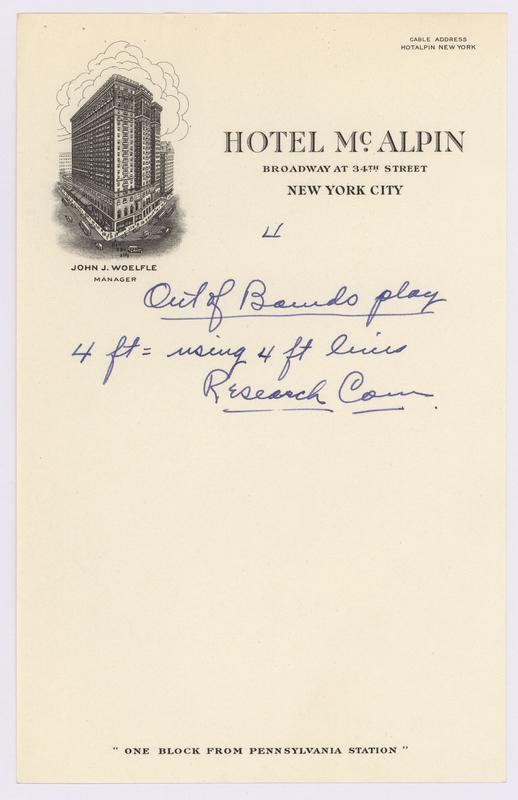 CABLE ADDRESS
HOTALPIN NEW YORK
HOTEL McALPIN
BROADWAY AT 34TH STREET
NEW YORK CITY
JOHN J. WOELFLE
MANAGER
4
Out of Bounds play
4 ft = using 4 ft lines
Research Com.
" ONE BLOCK FROM PENNSYLVANIA STATION "